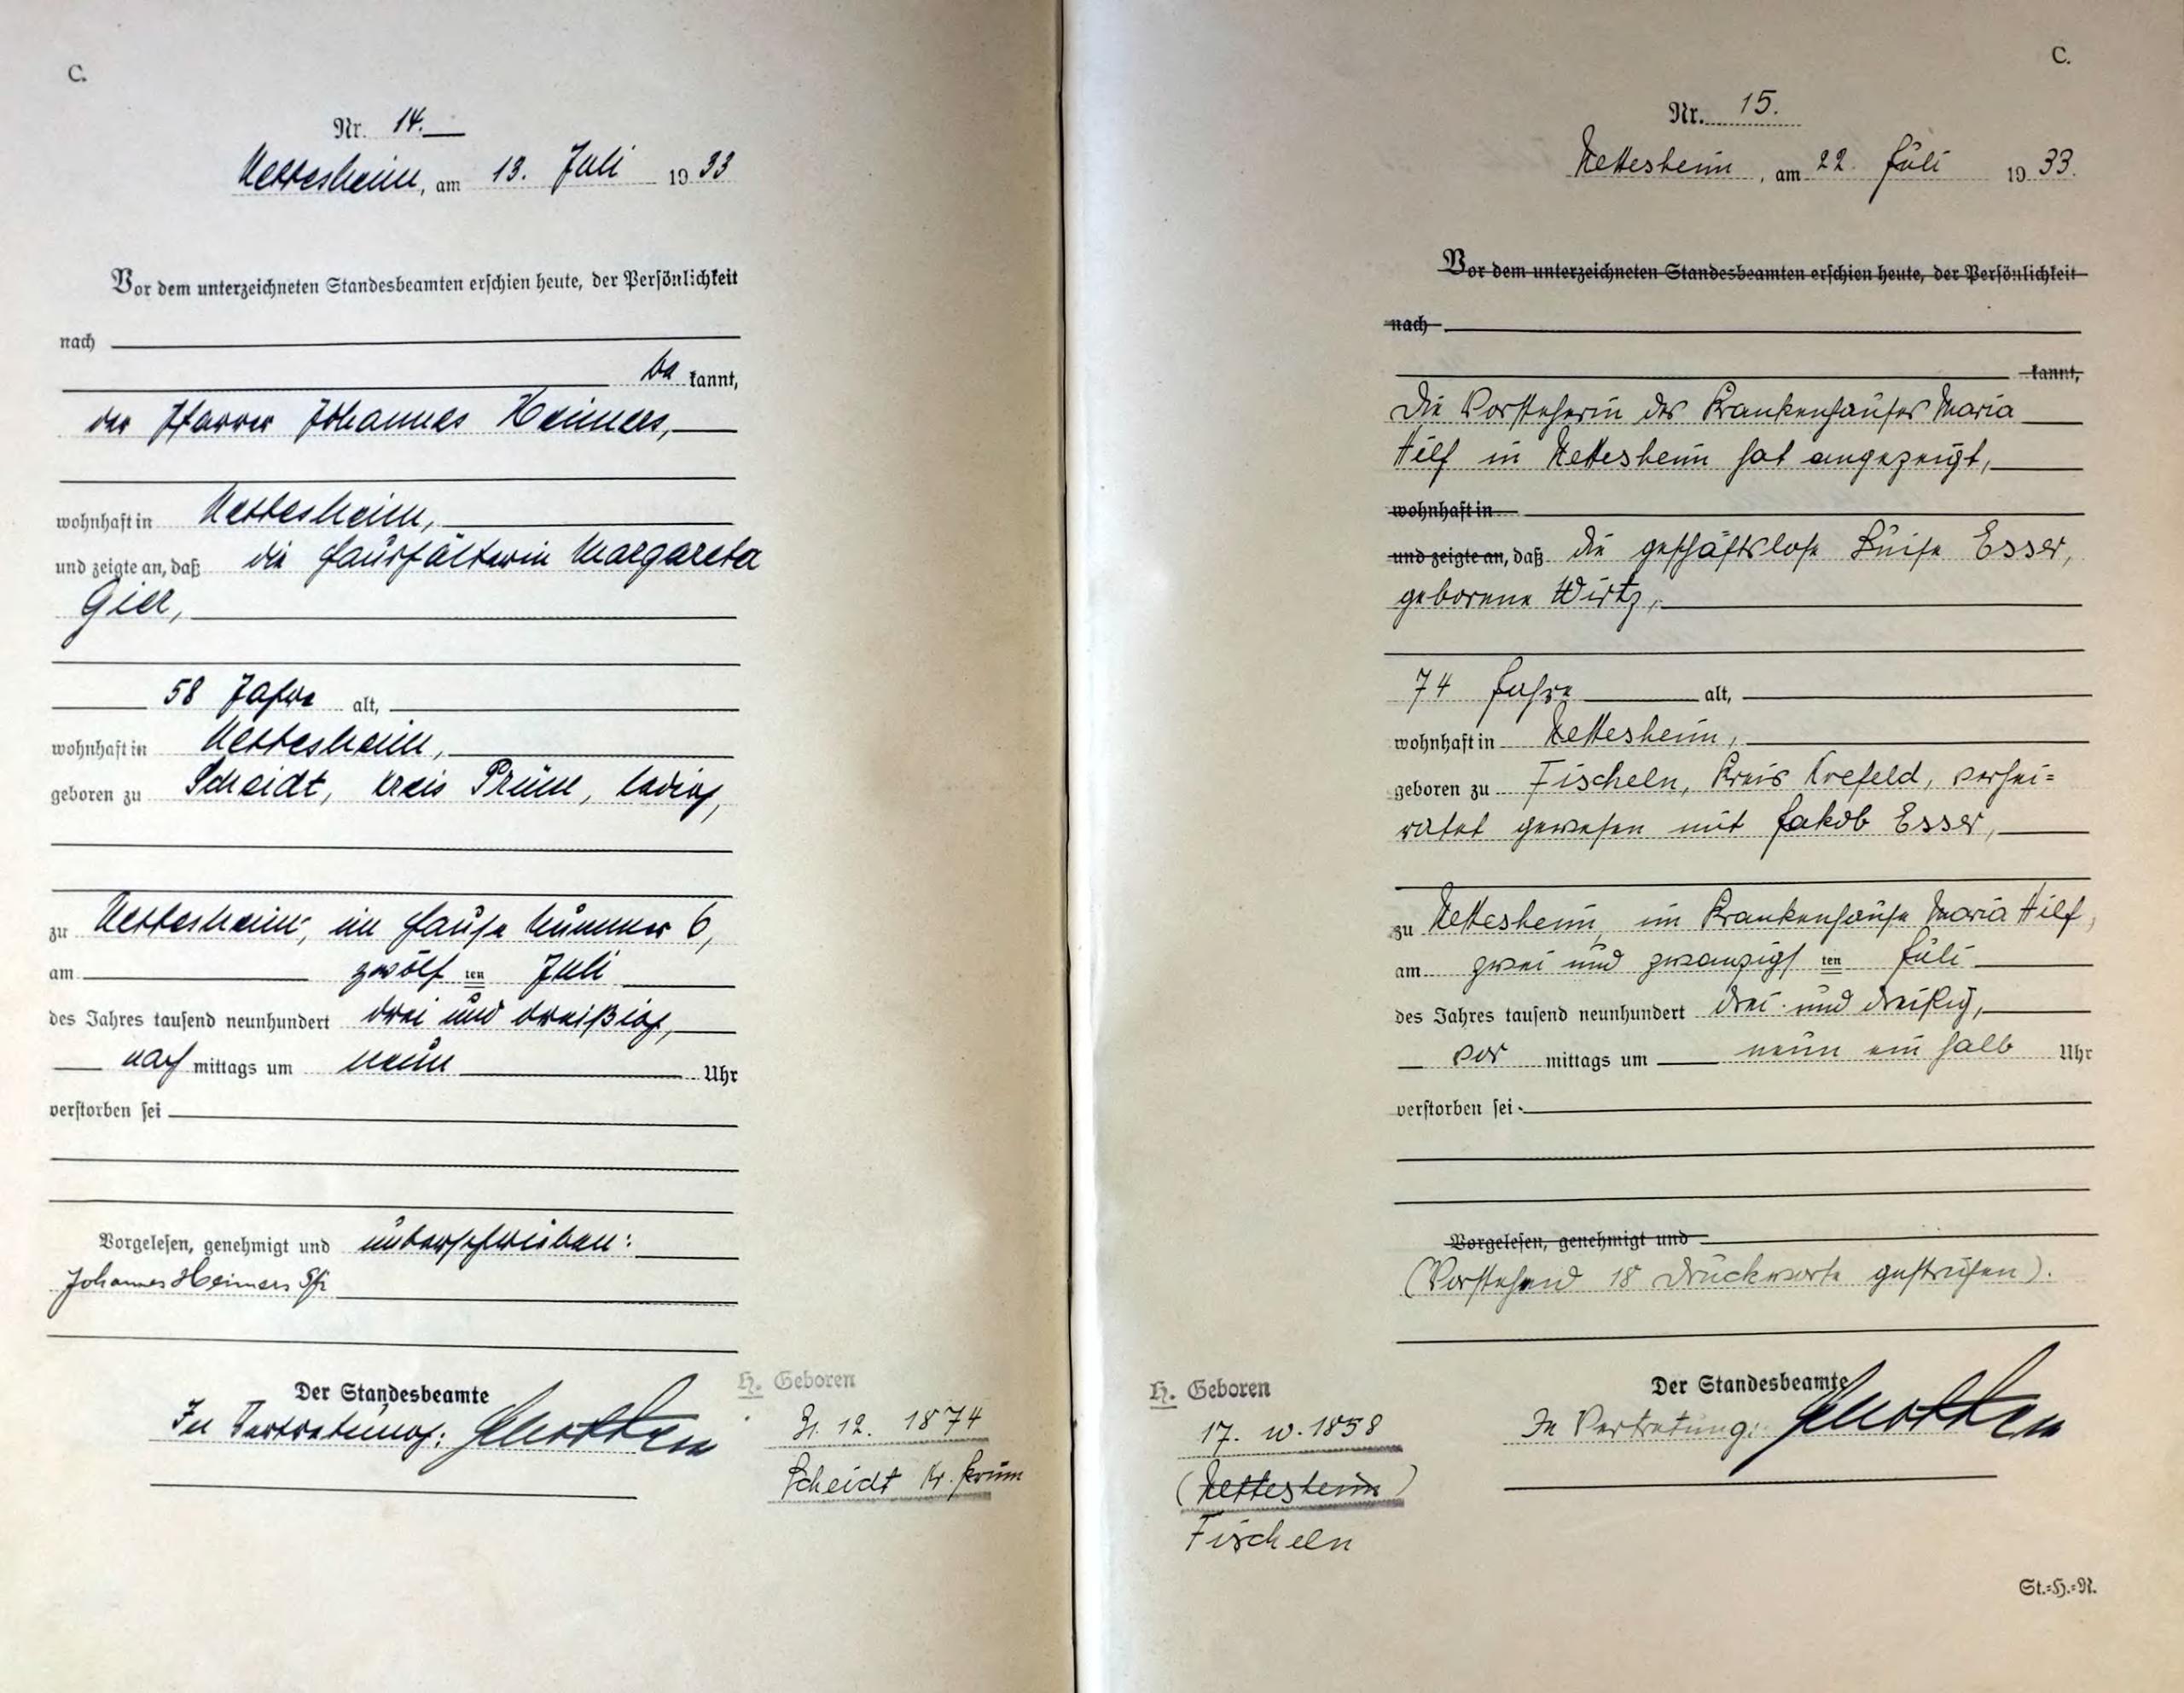 C.
Nr. 14.
Nettesheim, am 13. Juli 1933
Vor dem unterzeichneten Standesbeamten erschien heute, der Persönlichkeit
nach
be kannt,
der Pfarrer Johannes Heimers,
wohnhaft in Nettesheim,
und zeigte an, daß die Haushälterin Margareta
Gier,
58 Jahre alt,
wohnhaft in Nettesheim,
geboren zu Scheidt, Kreis Prüm, ledig,
zu Nettesheim, im Hause Nummer 6,
am zwölf ten Juli
des Jahres tausend neunhundert drei und dreißig,
nach mittags um neun Uhr
verstorben sei
Vorgelesen, genehmigt und unterschrieben:
Johannes Heimers Pfr
Der Standesbeamte
In Vertretung:
H. Geboren
12. 1874
Scheidt Kr. Prüm
C.
Nr. 15.
Nettesheim, am 22. Juli 1933.
Vor dem unterzeichneten Standesbeamten erschien heute, der Persönlichkeit
nach
kannt,
Die Vorsteherin des Krankenhauses Maria
Hilf in Nettesheim hat angezeigt,
wohnhaft in
und zeigte an, daß die geschäftslose Luise Esser,
geborene Wirtz,
74 Jahre alt,
wohnhaft in Nettesheim,
geboren zu Fischeln, Kreis Krefeld, verhei=
ratet gewesen mit Jakob Esser,
zu Nettesheim, im Krankenhause Maria Hilf,
am zwei und zwanzigs ten Juli
des Jahres tausend neunhundert drei und dreißig,
vor mittags um neun ein halb Uhr
verstorben sei
Vorgelesen, genehmigt und
(Vorstehend 18 Druckworte gestrichen).
Der Standesbeamte
In Vertretung:
H. Geboren
17. 10. 1858
(Nettesheim)
Fischeln
St.=H.=R.